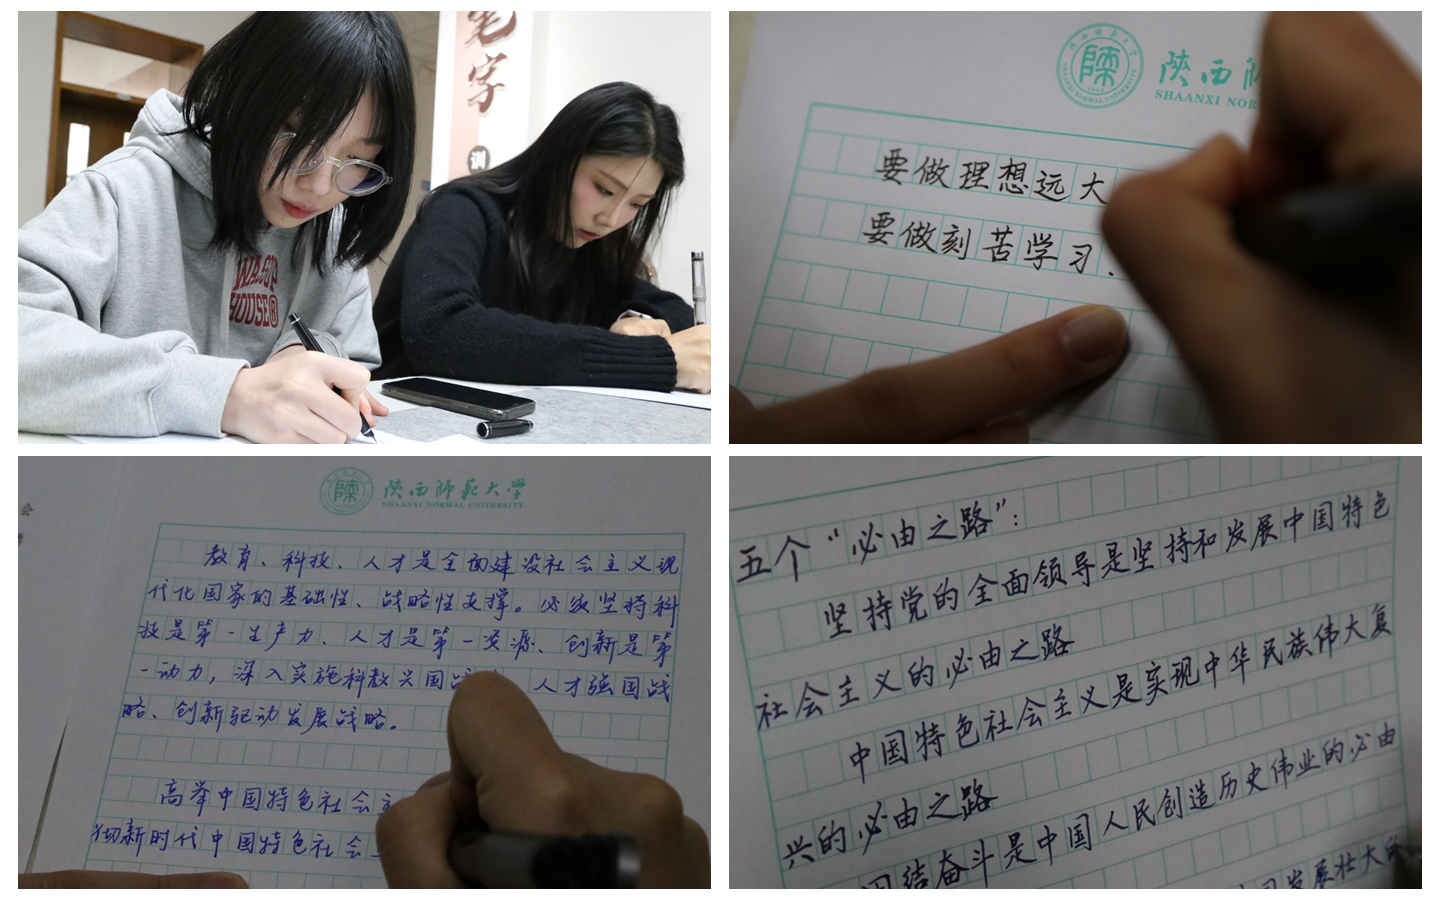 笔字
训
WASSUP
HOUSE®
陕西师
SHAANXI NOR
要做理想远大
要做刻苦学习
陕西師範大學
SHAANXI NORMAL UNIVERSITY
教育、科技、人才是全面建设社会主义现
代化国家的基础性、战略性支撑。必须坚持科
技是第一生产力、人才是第一资源、创新是第
一动力，深入实施科教兴国战 人才强国战
略、创新驱动发展战略。
高举中国特色社会主
彻新时代中国特色社会
五个“必由之路”：
坚持党的全面领导是坚持和发展中国特色
社会主义的必由之路
中国特色社会主义是实现中华民族伟大复
兴的必由之路
团结奋斗是中国人民创造历史伟业的必由
发展壮大的